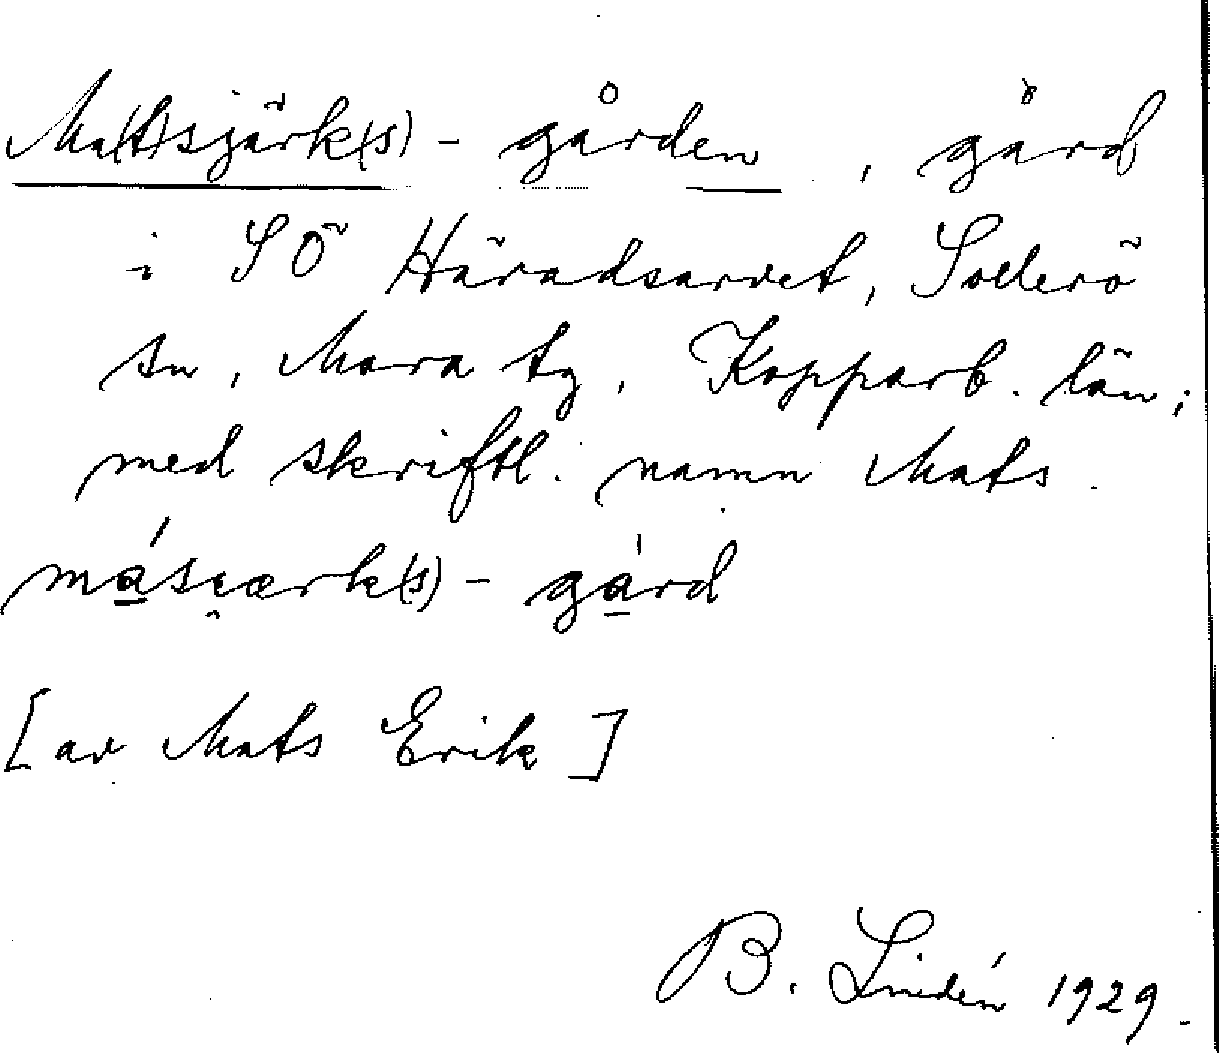 Ma(t)sjärk(s)-gården, gård
i SÖ Häradsarvet, Sollerö
sn, Mora tg, Kopparb. län;
med skriftl. namn Mats.
mási̯ærk(s)-gárd
[av Mats Erik]
B. Lindén 1929.